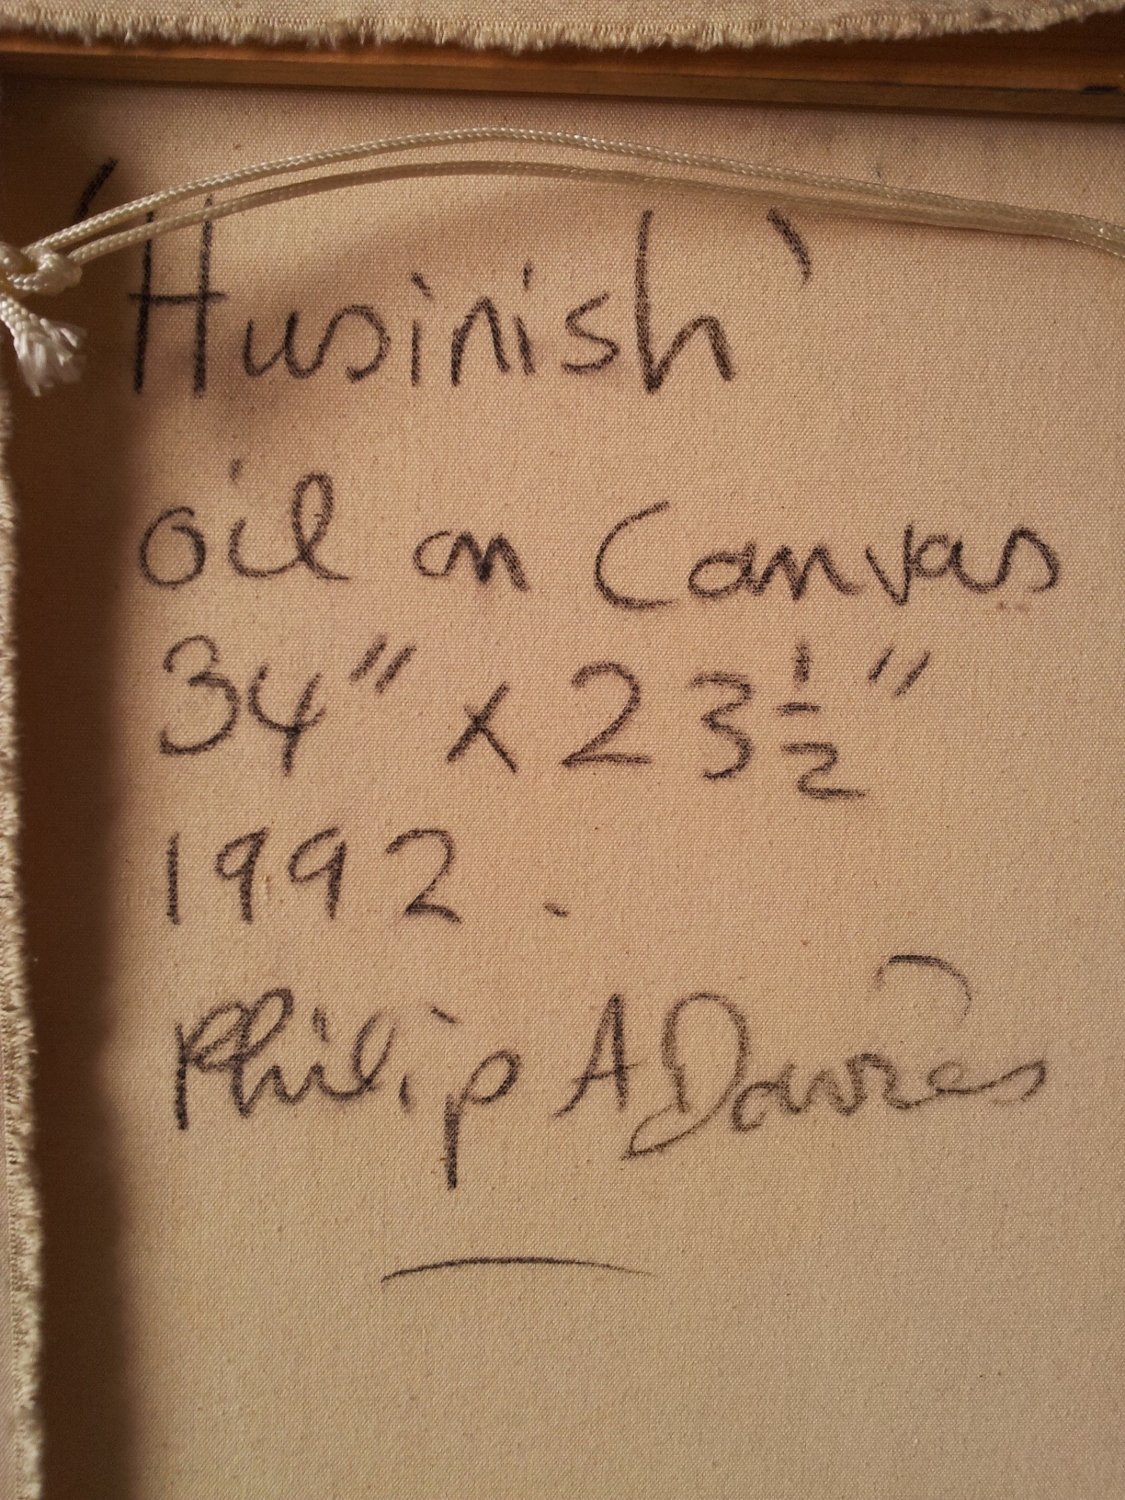 'Husinish'
oil on Canvas
34" x 23 1/2"
1992.
Philip A Davies